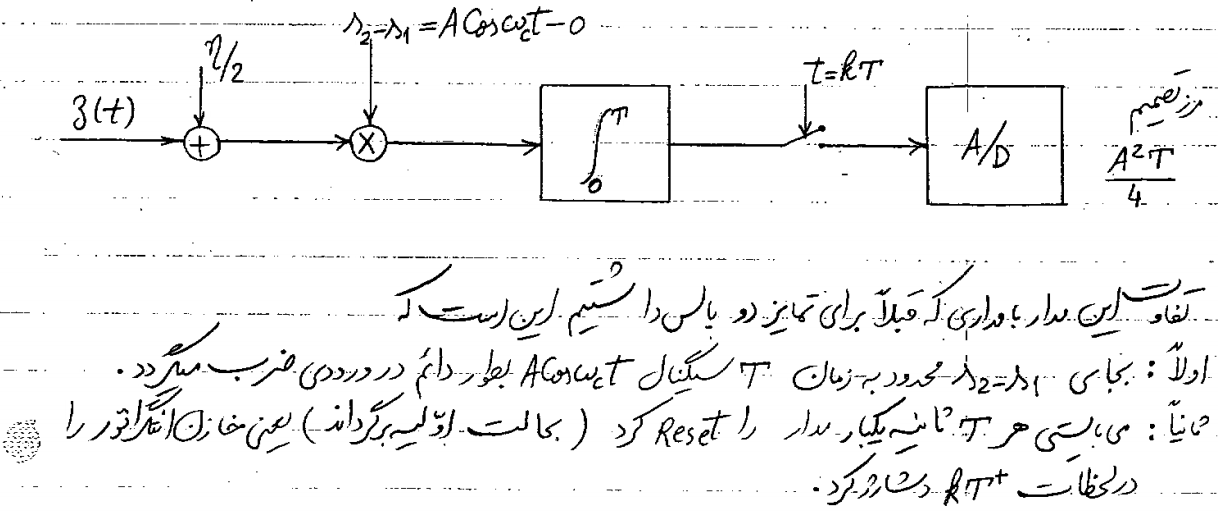 s₂-s₁ = A Cos ω_c t - 0
η/2
t=kT
z(t)
+
×
∫₀ᵀ
A/D
مرز تصمیم
A²T/4
تفاوت این مدار با مداری که قبلاً برای تمایز دو پالس داشتیم این است که
اولاً : بجای s₂-s₁ محدود به زمان T سیگنال A Cos ω_c t بطور دائم در ورودی ضرب میگردد .
ثانیاً : می بایستی هر T ثانیه یکبار مدار را Reset کرد ( بحالت اولیه برگرداند ) یعنی خازن انتگراتور را
در لحظات kT⁺ دشارژ کرد .